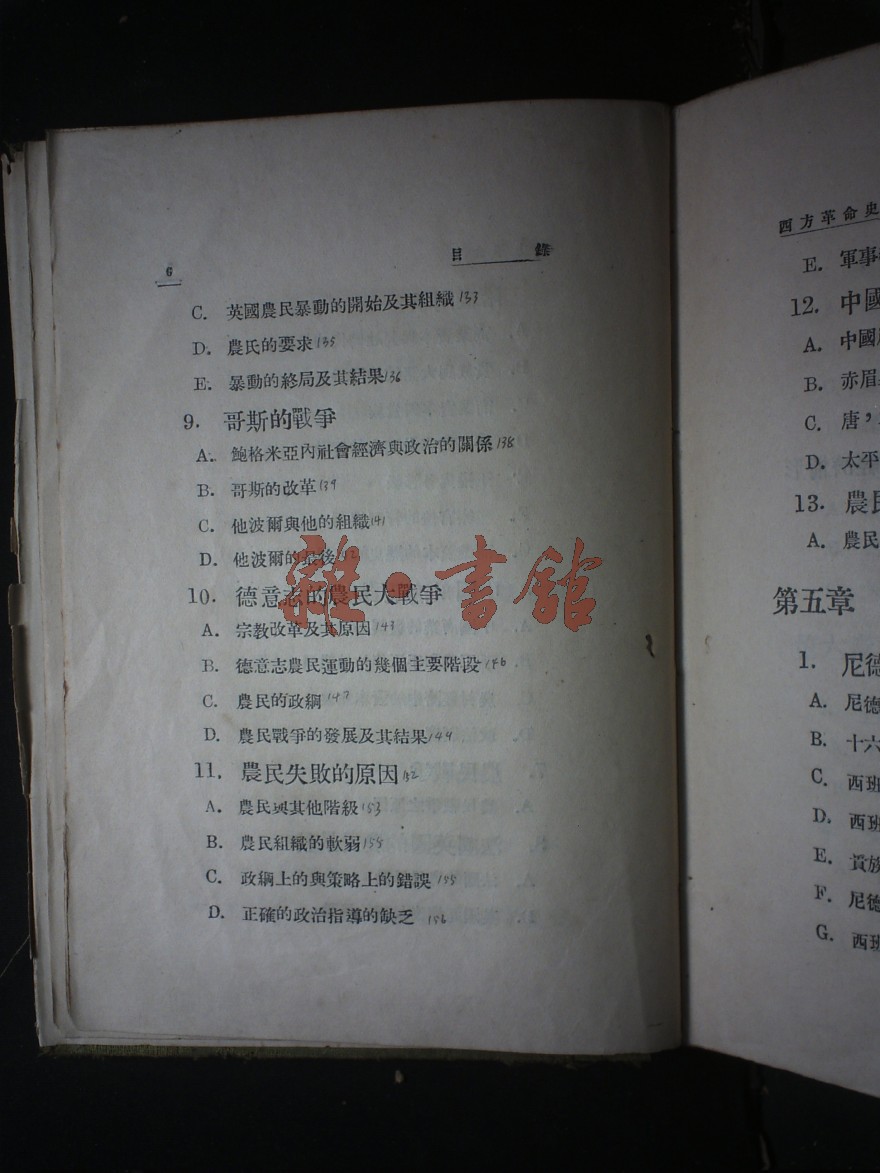 6
目 錄
C. 英國農民暴動的開始及其組織 133
D. 農民的要求 135
E. 暴動的終局及其結果 136
9. 哥斯的戰爭
A. 鮑格米亞內社會經濟與政治的關係 138
B. 哥斯的改革 139
C. 他波爾與他的組織 141
D. 他波爾的最後
10. 德意志的農民大戰爭
A. 宗教改革及其原因 143
B. 德意志農民運動的幾個主要階段 146
C. 農民的政綱 147
D. 農民戰爭的發展及其結果 149
11. 農民失敗的原因 152
A. 農民與其他階級 153
B. 農民組織的軟弱 154
C. 政綱上的與策略上的錯誤 155
D. 正確的政治指導的缺乏 156
雜·書館
西方革命史
E. 軍事
12. 中國
A. 中國
B. 赤眉
C. 唐，
D. 太平
13. 農民
A. 農民
第五章
1. 尼德
A. 尼德
B. 十六
C. 西班
D. 西班
E. 貴族
F. 尼德
G. 西班